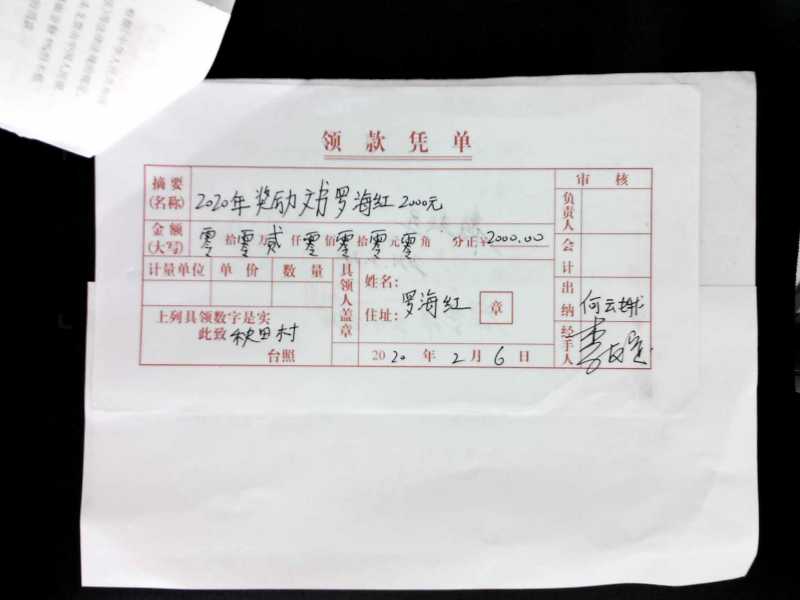 领款凭单
摘要(名称) 2020年奖励文书罗海红2000元
金额(大写) 零拾零万贰仟零佰零拾零元零角 分正¥2000.00
计量单位 单价 数量
上列具领数字是实
此致 秧田村
台照
具领人盖章
姓名: 罗海红
住址:
章
2020年2月6日
审核
负责人
会计
出纳 何云
经手人